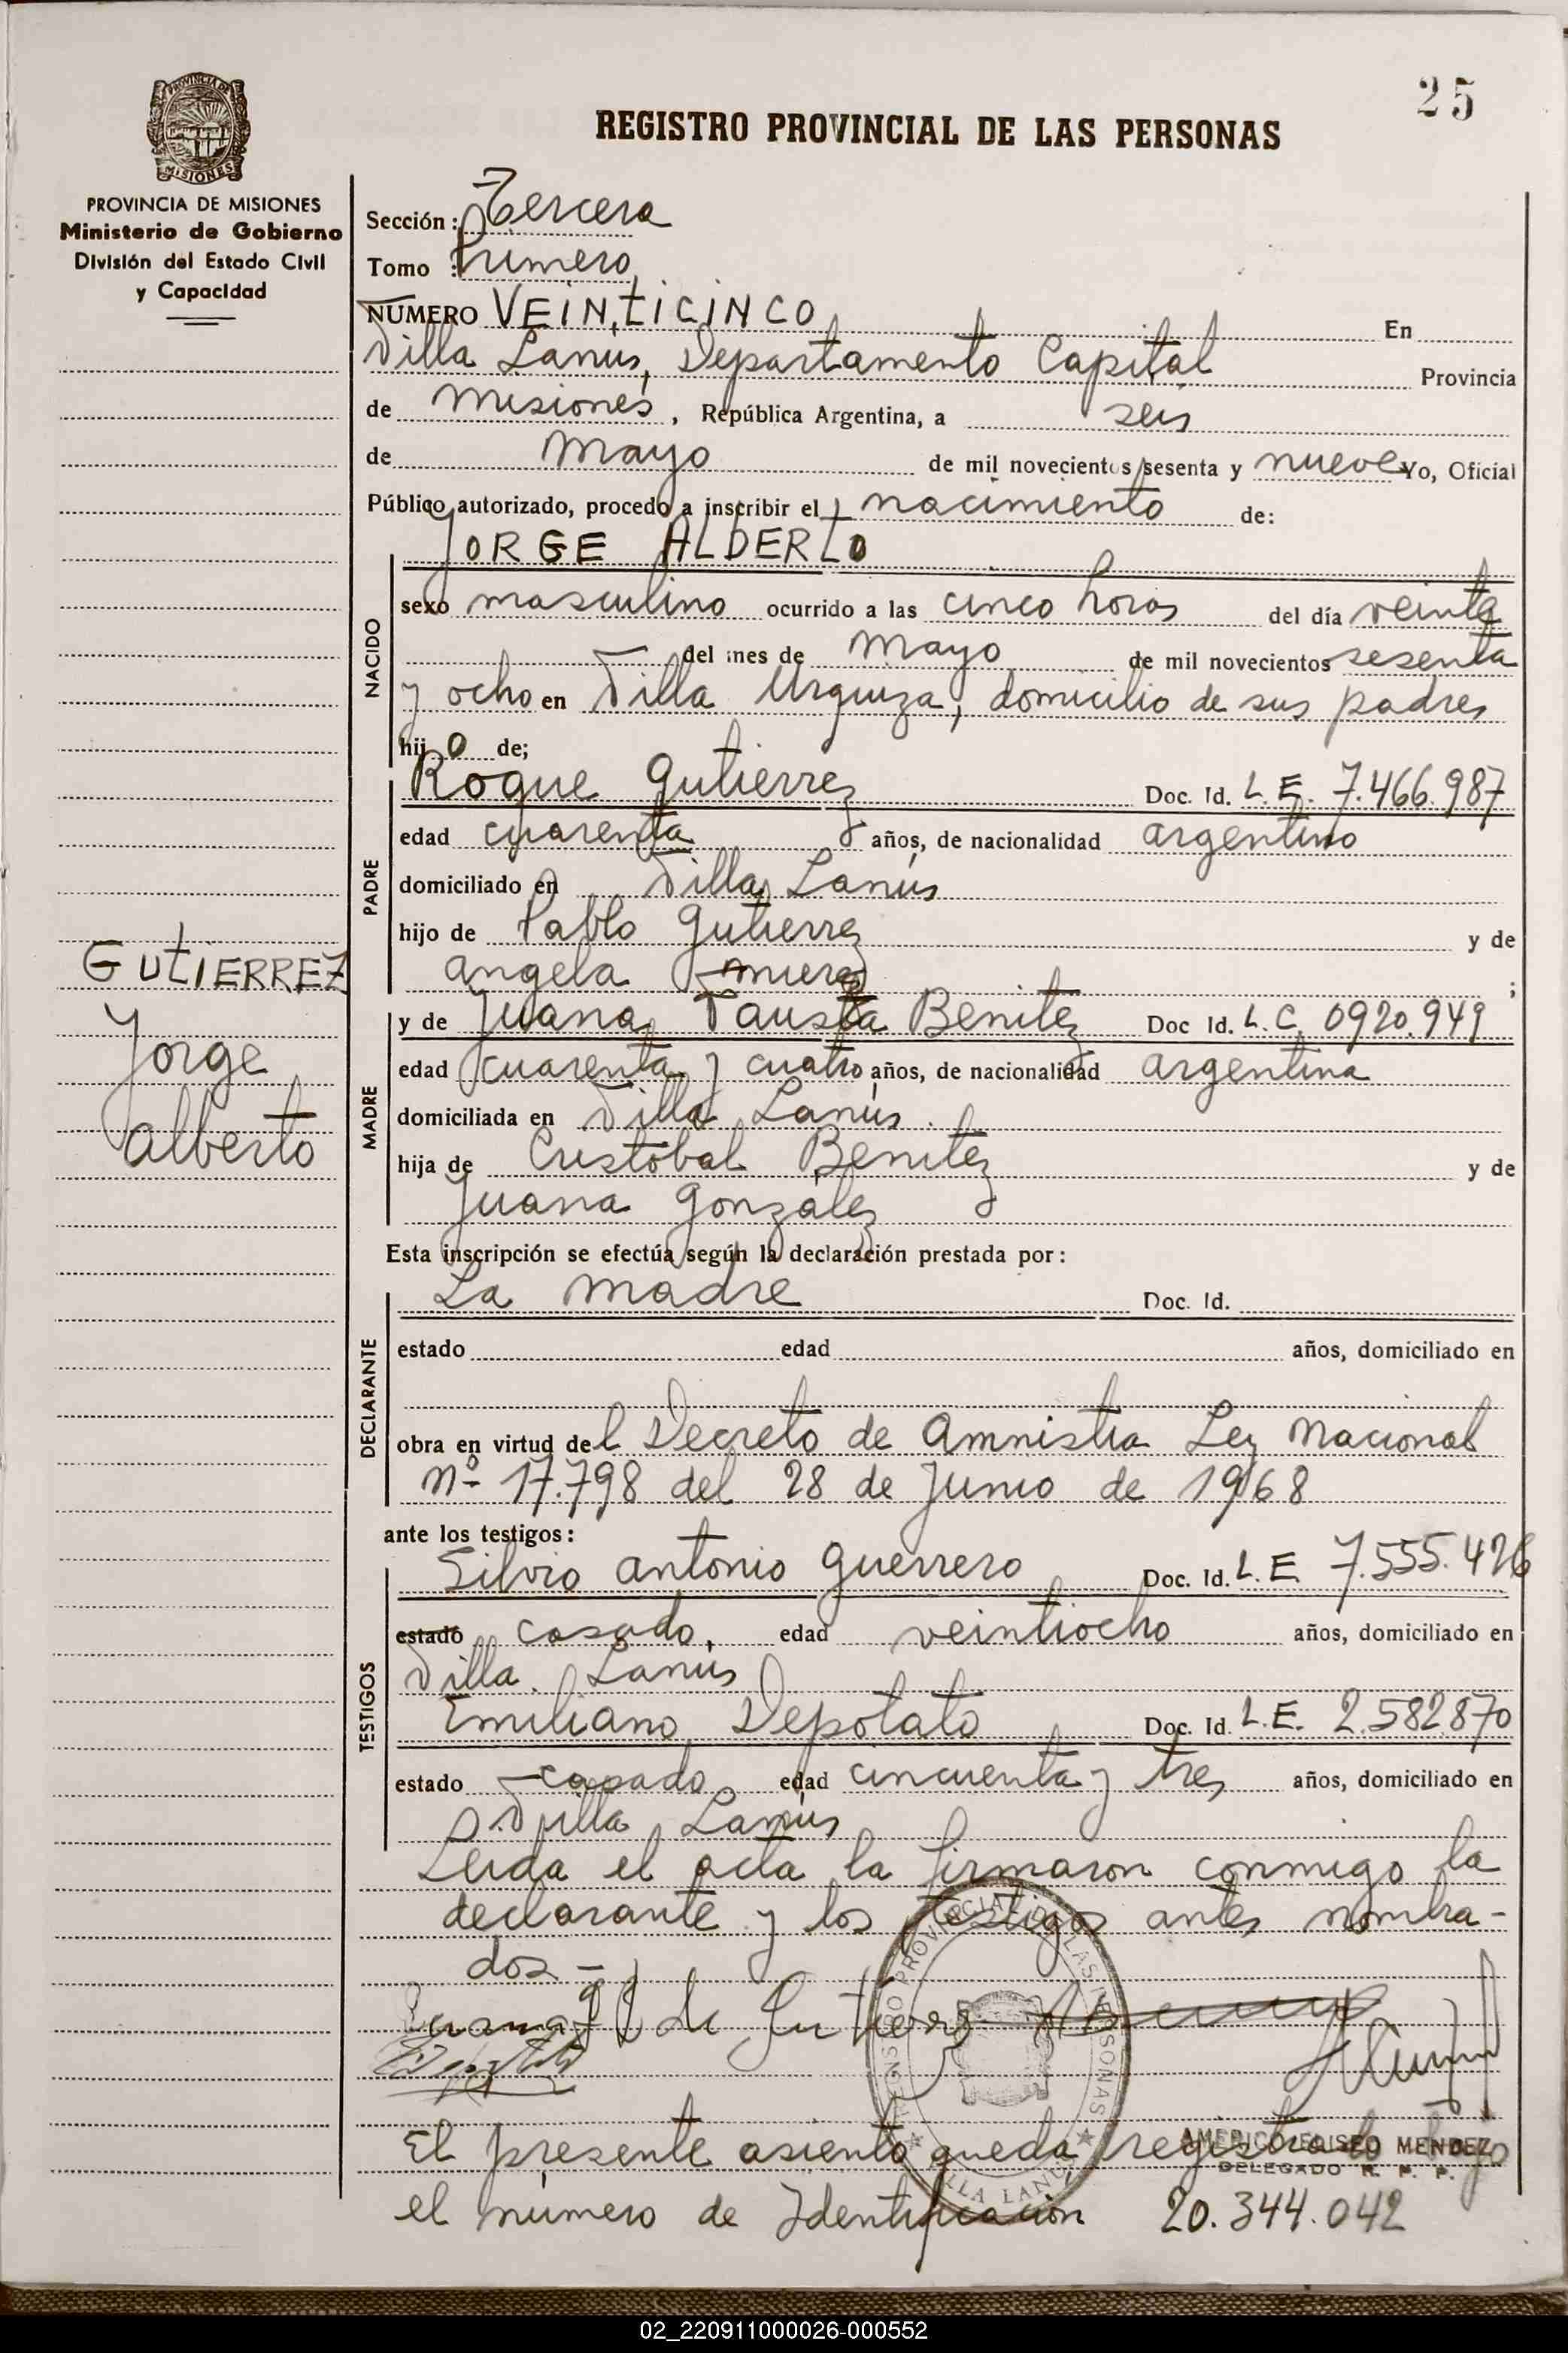 25
REGISTRO PROVINCIAL DE LAS PERSONAS
PROVINCIA DE MISIONES
MISIONES
PROVINCIA DE MISIONES
Ministerio de Gobierno
División del Estado Civil
y Capacidad
Sección: Tercera
Tomo : Primero
NUMERO VEINTICINCO En
Villa Lanús, Departamento Capital Provincia
de Misiones, República Argentina, a seis
de Mayo de mil novecientos sesenta y nueve Yo, Oficial
Público autorizado, procedo a inscribir el nacimiento de:
JORGE ALBERTO
NACIDO
sexo masculino ocurrido a las cinco horas del día veinte
del mes de Mayo de mil novecientos sesenta
y ocho en Villa Urquiza, domicilio de sus padres
hijo de;
PADRE
Roque Gutierrez Doc. Id. L.E. 7.466.987
edad cuarenta años, de nacionalidad argentino
domiciliado en Villa Lanús
hijo de Pablo Gutierrez y de
Angela ;
GUTIERREZ
Jorge
Alberto
MADRE
y de Juana Fausta Benitez Doc Id. L.C. 0920.949
edad cuarenta y cuatro años, de nacionalidad argentina
domiciliada en Villa Lanús.
hija de Cristóbal Benitez y de
Juana Gonzalez
Esta inscripción se efectúa según la declaración prestada por:
DECLARANTE
La madre Doc. Id.
estado edad años, domiciliado en
obra en virtud del Decreto de Amnistia Ley Nacional
Nº 17.798 del 28 de Junio de 1968
ante los testigos:
TESTIGOS
Silvio Antonio Guerrero Doc. Id. L.E. 7.555.426
estado casado, edad veintiocho años, domiciliado en
Villa Lanús
Emiliano Depotato Doc. Id. L.E. 2.582.870
estado casado edad cincuenta y tres años, domiciliado en
Villa Lanús
Leida el acta la firmaron conmigo la
declarante y los testigos antes nombra-
dos -
Juana de Gutierrez
REGISTRO PROVINCIAL DE LAS PERSONAS
VILLA LANUS
AMERICO ELISEO MENDEZ
DELEGADO R. P. P.
El presente asiento queda registrado bajo
el número de Identificación 20.344.042
02_220911000026-000552